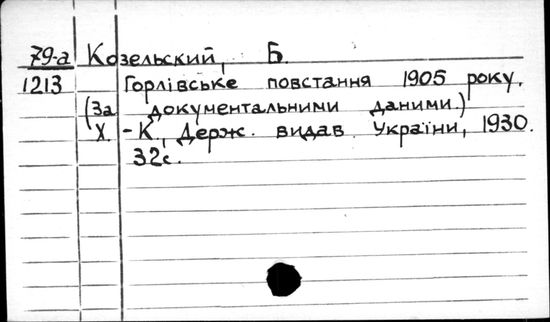 79-а Козельский, Б.
1213 Горлівське повстання 1905 року.
(За документальними даними.)
Х. - К., Держ. видав. України, 1930.
32с.